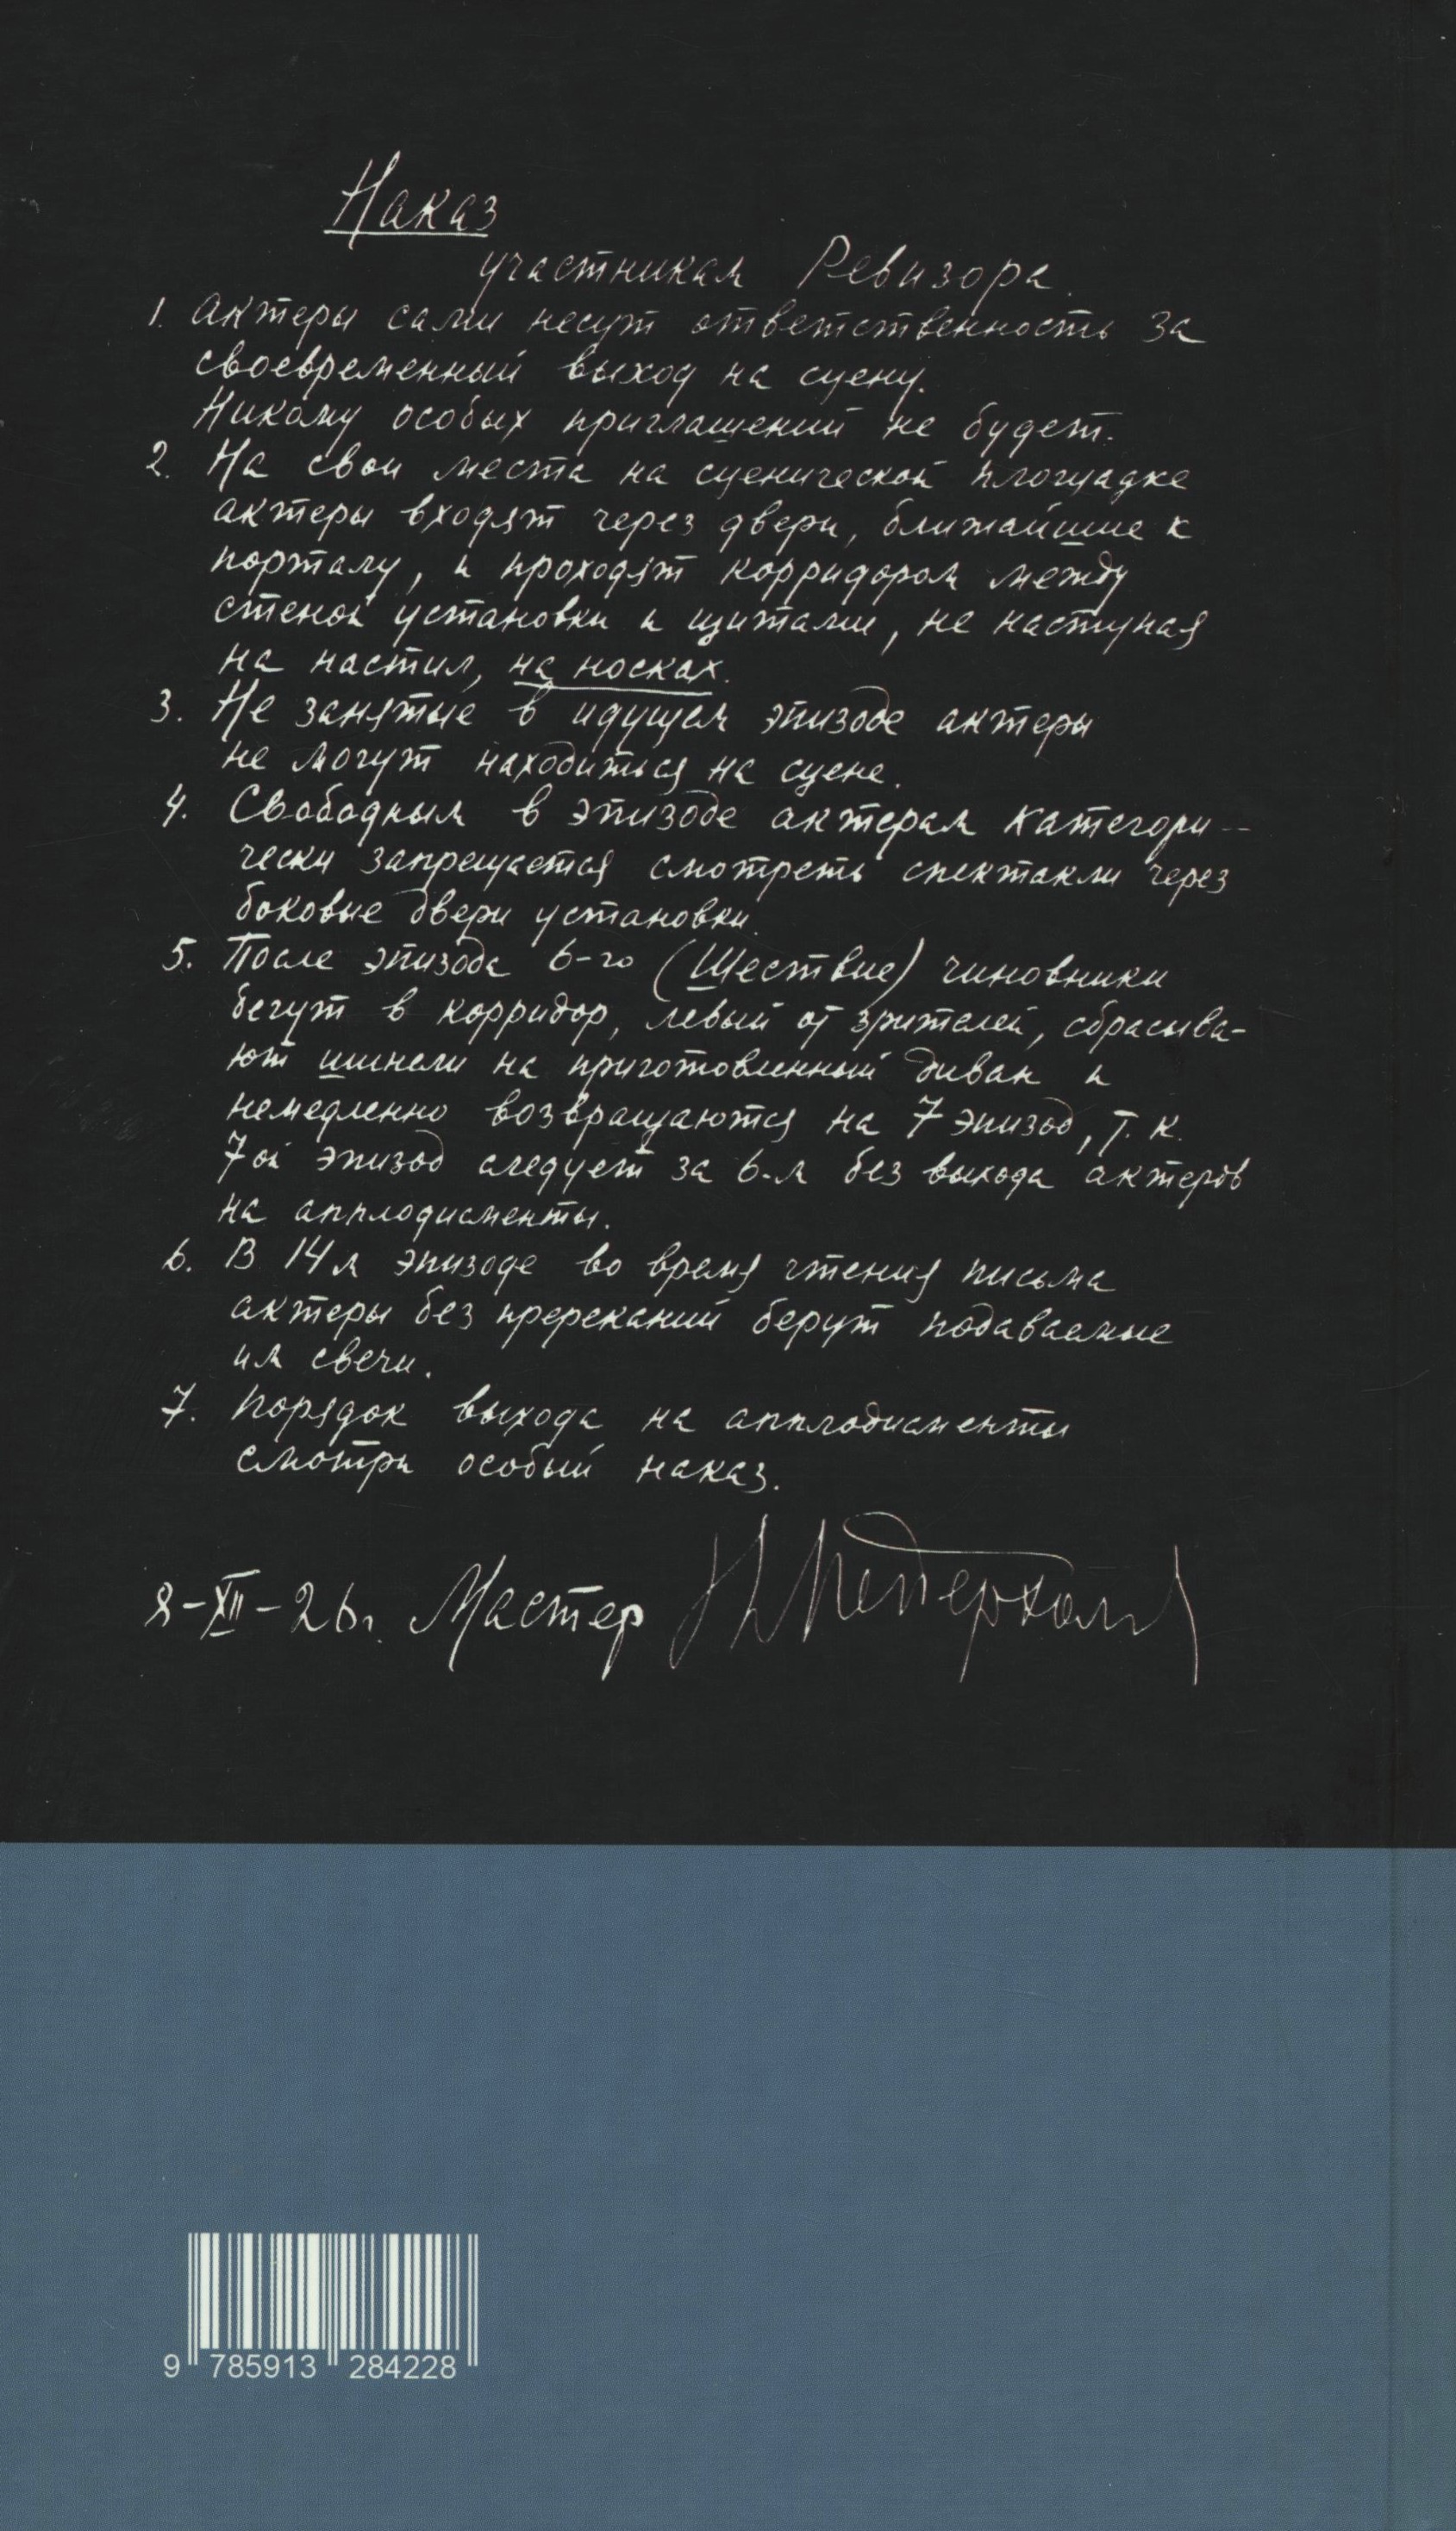 Наказ
участникам Ревизора.
1. Актеры сами несут ответственность за
своевременный выход на сцену.
Никому особых приглашений не будет.
2. На свои места на сценической площадке
актеры входят через двери, ближайшие к
порталу, и проходят корридором между
стеной установки и щитами, не наступая
на настил, на носках.
3. Не занятые в идущем эпизоде актеры
не могут находиться на сцене.
4. Свободным в эпизоде актерам категори-
чески запрещается смотреть спектакли через
боковые двери установки.
5. После эпизода 6-го (Шествие) чиновники
бегут в корридор, левый от зрителей, сбрасыва-
ют шинели на приготовленный диван и
немедленно возвращаются на 7 эпизод, т. к.
7ой эпизод следует за 6-м без выхода актеров
на апплодисменты.
6. В 14м эпизоде во время чтения письма
актеры без пререканий берут подаваемые
им свечи.
7. Порядок выхода на апплодисменты
смотри особый наказ.
8-XII-26г. Мастер В Мейерхольд
9 785913 284228